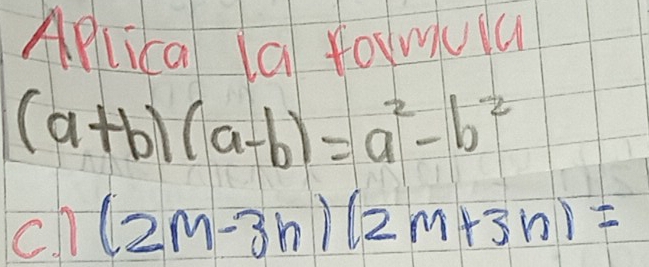 Aplica la formula
(a+b)(a-b)=a²-b²
c.) (2m-3n)(2m+3n)=